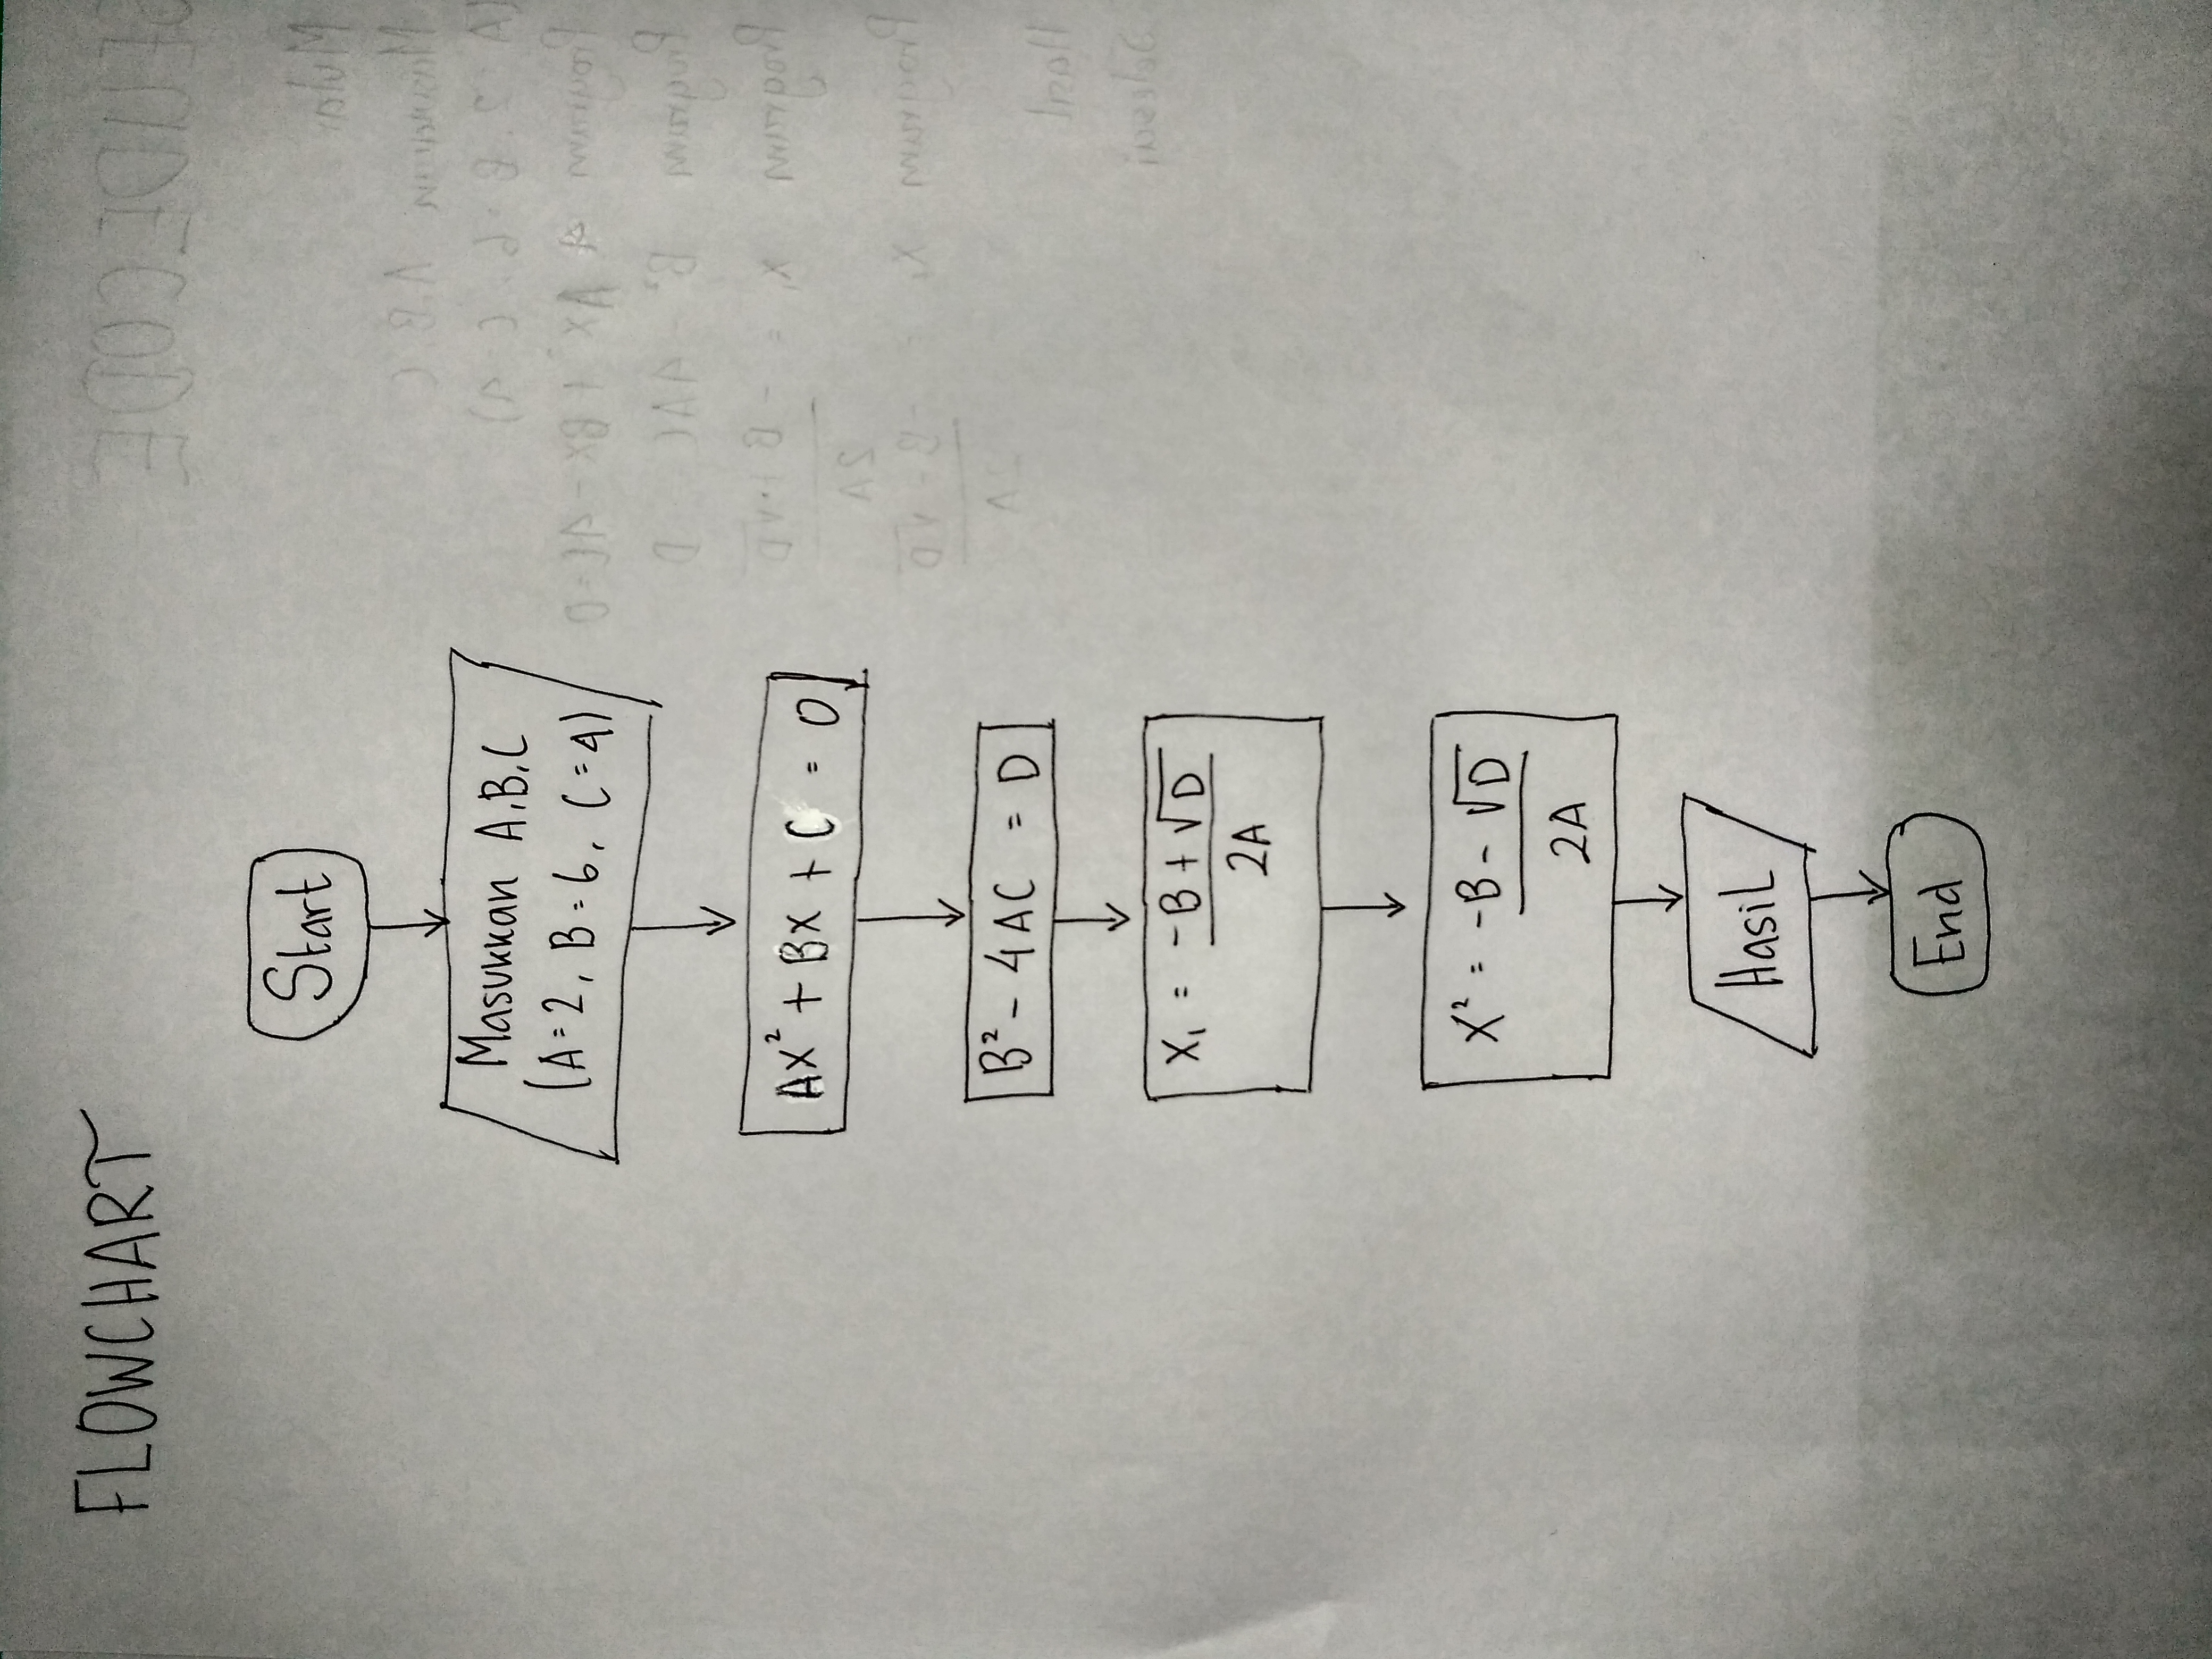 FLOWCHART
Start
Masukkan A,B,C
(A=2, B=6, C=4)
AX² + BX + C = 0
B² - 4AC = D
X₁ = -B + √D
2A
X² = -B - √D
2A
HasiL
End